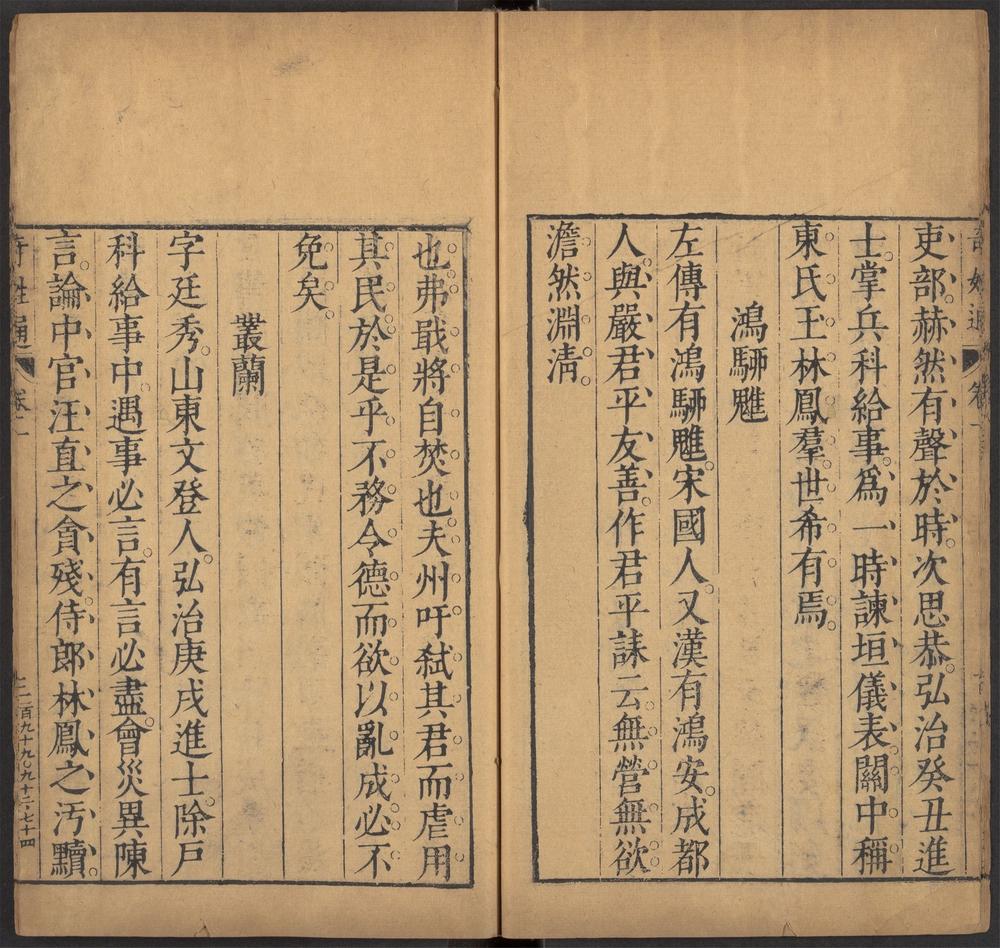 吏部赫然有聲於時次思恭弘治癸丑進
士掌兵科給事爲一時諫垣儀表關中稱
東氏王林鳳羣世希有焉
鴻駵魋
左傳有鴻駵魋宋國人又漢有鴻安成都
人與嚴君平友善作君平誄云無營無欲
澹然淵淸
也弗戢將自焚也夫州吁弑其君而虐用
其民於是乎不務令德而欲以亂成必不
免矣
叢蘭
字廷秀山東文登人弘治庚戌進士除戸
科給事中遇事必言有言必盡會災異陳
言論中官汪直之貪殘侍郎林鳳之汚黷
姓通